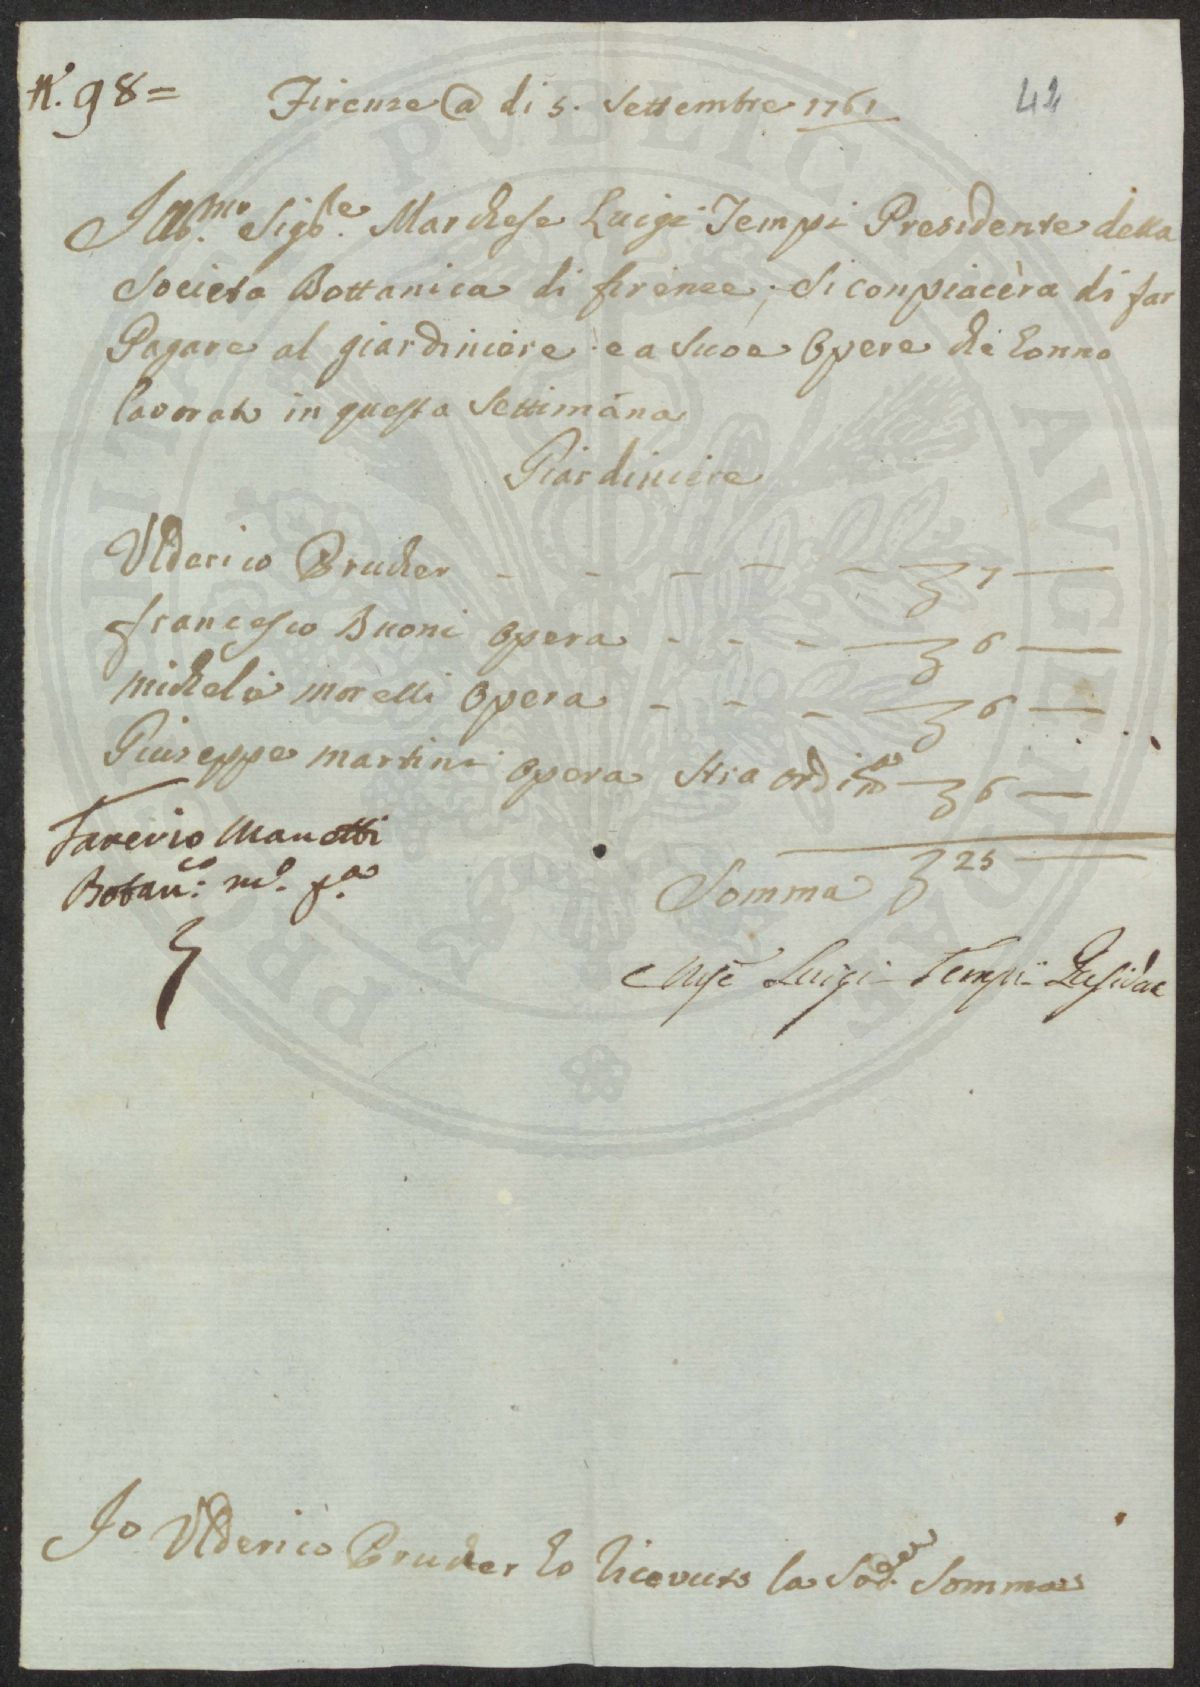 N.° 98 =
Firenze @ di 5. Settembre 1761
42
Ill.mo Sig.re Marchese Luigi Tempi Presidente della
Societa Bottanica di firenze, Si conpiacèra di far
Pagare al giardiniere e a Suoe Opere che Conno
lavorato in questa Settimana
Giardiniere
Ulderico Prucher - - - - - 7
francesco Buoni opera - - - 6
michele morelli opera - - - 6
Giuseppe martini opera Stra ordina 6
Somma 25
Manetti
Botan.co m.o p.a
Luigi Tempi Preside
PVBLICAE AVGENDAE
Io Ulderico Prucher ho Riceuuto la Sod. Somma